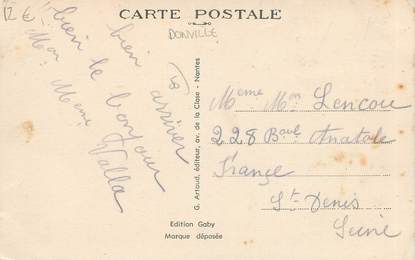 12 €
CARTE POSTALE
DONVILLE
bien arriver
bien le bonjour
Mon Meme
Valla
G. Artaud, éditeur, av. de la Close - Nantes
Meme Mon Lencou
228 Boul Anatole
France
St Denis
Seine
Edition Gaby
Marque déposée